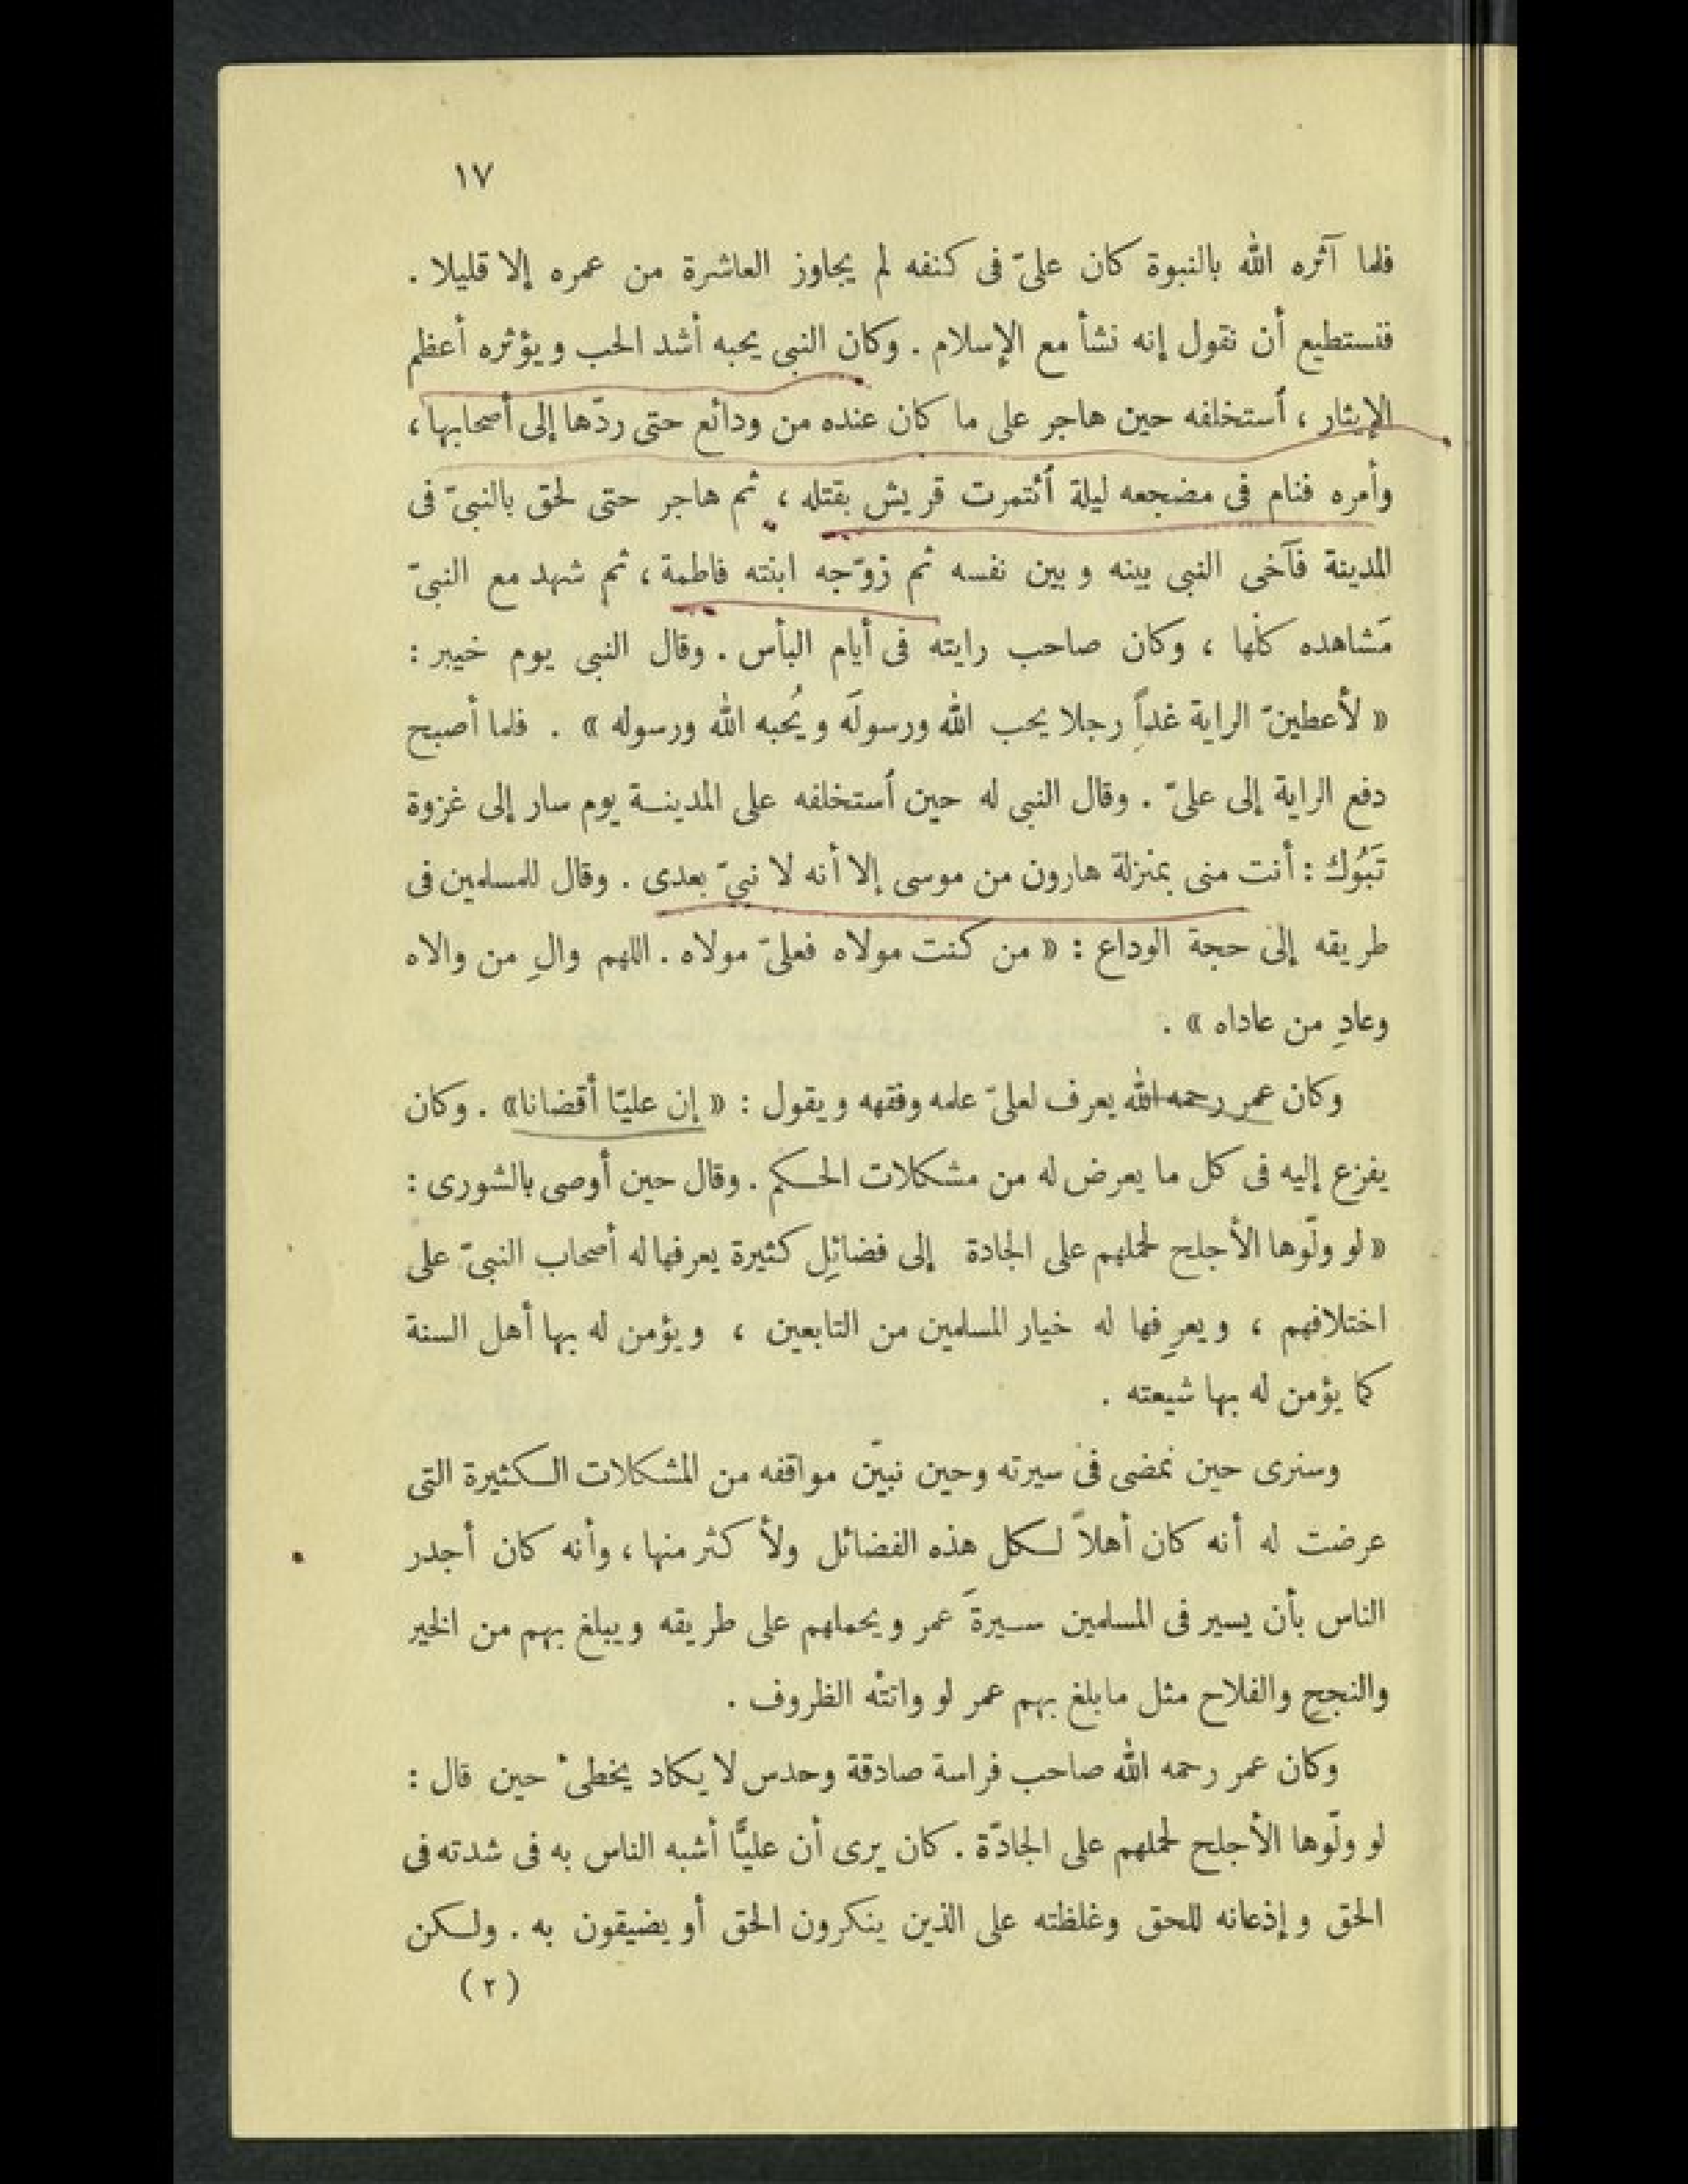 ١٧
فلما آثره الله بالنبوة كان علىّ فى كنفه لم يجاوز العاشرة من عمره إلا قليلا .
فنستطيع أن نقول إنه نشأ مع الإسلام . وكان النبى يحبه أشد الحب ويؤثره أعظم
الإيثار ، أستخلفه حين هاجر على ما كان عنده من ودائع حتى ردّها إلى أصحابها ،
وأمره فنام فى مضجعه ليلة أئتمرت قريش بقتله ، ثم هاجر حتى لحق بالنبىّ فى
المدينة فآخى النبى بينه وبين نفسه ثم زوّجه ابنته فاطمة ، ثم شهد مع النبىّ
مَشاهده كلها ، وكان صاحب رايته فى أيام البأس . وقال النبى يوم خيبر :
« لأعطينّ الراية غداً رجلا يحب الله ورسولَه ويُحبه الله ورسوله » . فلما أصبح
دفع الراية إلى علىّ . وقال النبى له حين أستخلفه على المدينـة يوم سار إلى غزوة
تَبُوك : أنت منى بمنزلة هارون من موسى إلا أنه لا نبىّ بعدى . وقال للمسلمين فى
طريقه إلى حجة الوداع : « من كنت مولاه فعلىّ مولاه . اللهم والِ من والاه
وعادِ من عاداه » .
وكان عمر رحمه الله يعرف لعلىّ علمه وفقهه ويقول : « إن عليّا أقضانا» . وكان
يفزع إليه فى كل ما يعرض له من مشكلات الحـكم . وقال حين أوصى بالشورى :
« لو ولّوها الأجلح لحملهم على الجادة إلى فضائِل كثيرة يعرفها له أصحاب النبىّ على
اختلافهم ، ويعرِفها له خيار المسلمين من التابعين ، ويؤمن له بها أهل السنة
كما يؤمن له بها شيعته .
وسنرى حين نمضى فى سيرته وحين نبيّن مواقفه من المشكلات الـكثيرة التى
عرضت له أنه كان أهلاً لـكل هذه الفضائل ولأكثر منها ، وأنه كان أجدر
الناس بأن يسير فى المسلمين سـيرةَ عمر ويحملهم على طريقه ويبلغ بهم من الخير
والنجح والفلاح مثل مابلغ بهم عمر لو واتتْه الظروف .
وكان عمر رحمه الله صاحب فراسة صادقة وحدس لا يكاد يخطىء حين قال :
لو ولّوها الأجلح لحملهم على الجادّة . كان يرى أن عليًّا أشبه الناس به فى شدته فى
الحق وإذعانه للحق وغلظته على الذين ينكرون الحق أو يضيقون به . ولـكن
( ٢ )